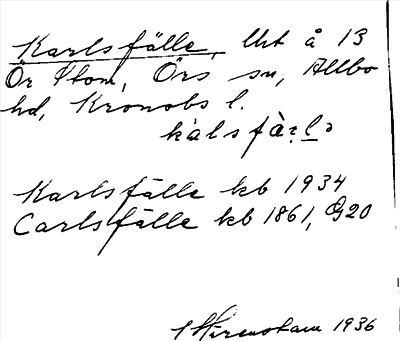 Karlsfälle, lht å 13
Ör Ptom, Örs sn, Allbo
hd, Kronobs l.
kàlsfà
Karlsfälle kb 1934
Carlsfälle kb 1861, G20
1936